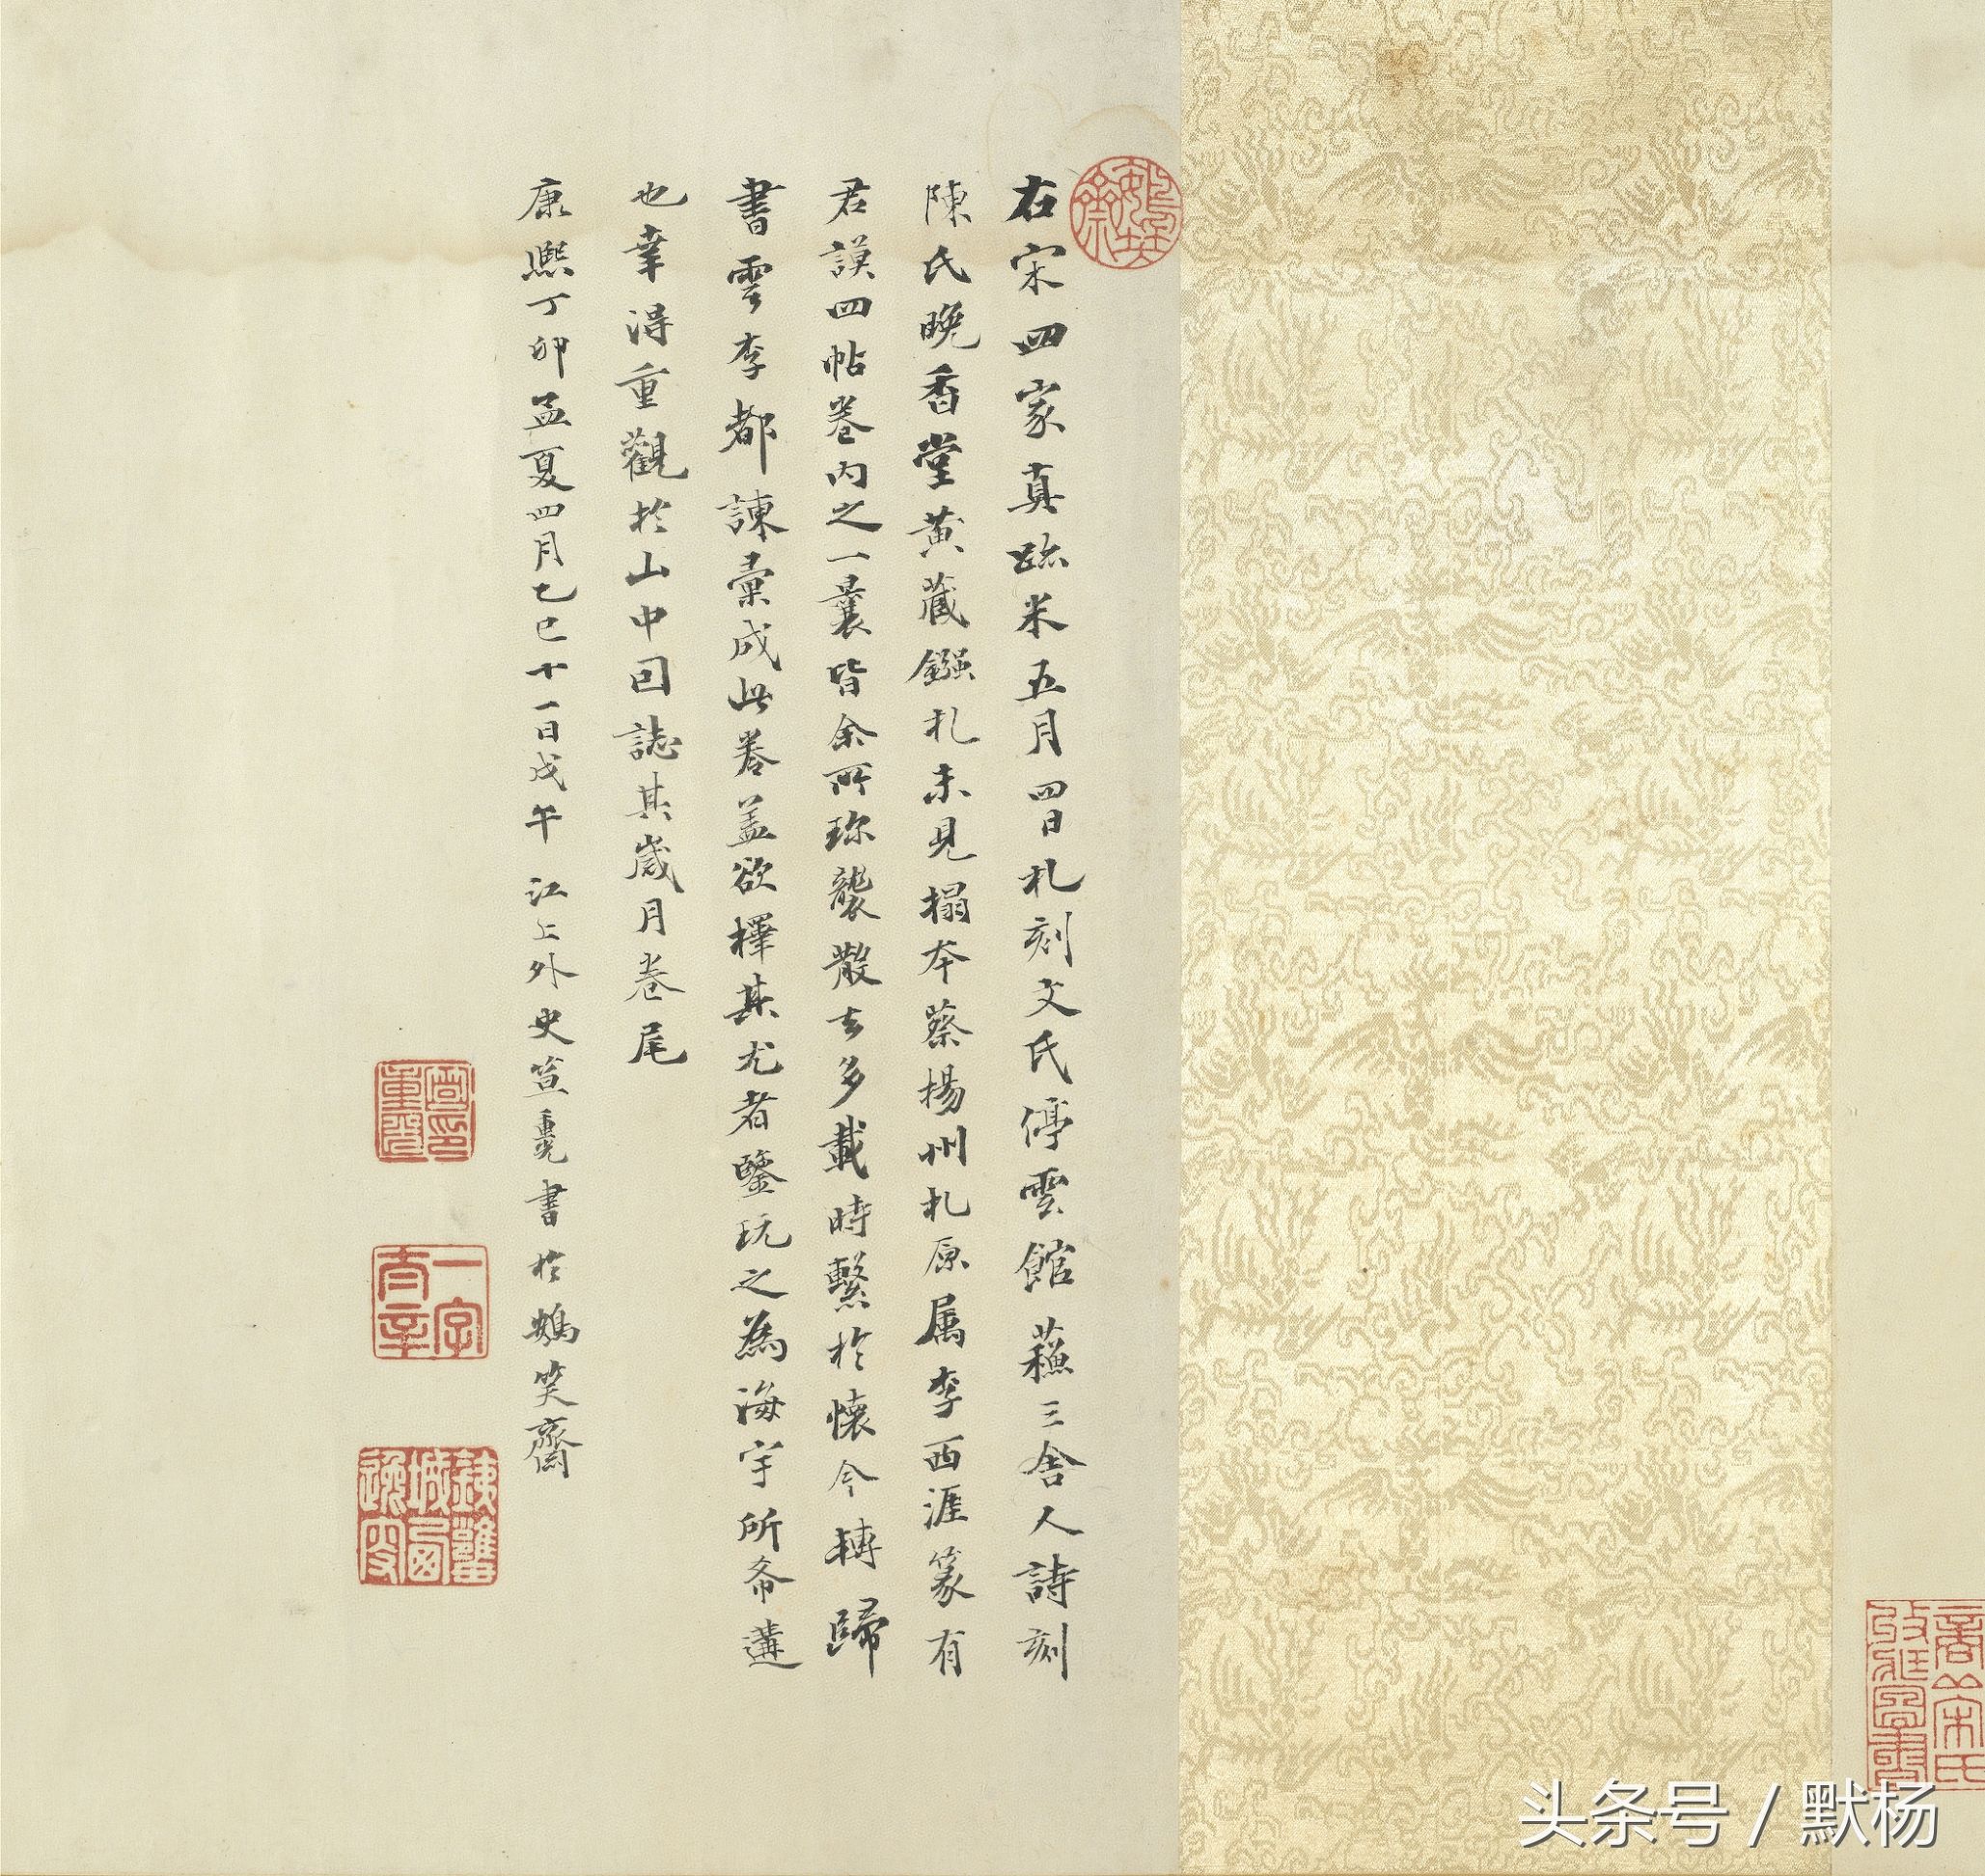 右宋四家真跡米五月四日札刻文氏停雲館蘓三舍人詩刻
陳氏晚香堂黄藏鏹札未見搨本蔡楊州札原属李西涯篆有
君謨四帖卷内之一曩皆余所珎襲散去多載時繫於懷今轉歸
書雲李都諫彙成此卷盖欲擇其尤者鑒玩之為海宇所希遘
也幸得重觀於山中因誌其歲月卷尾
康熙丁卯孟夏四月乙巳十一日戊午 江上外史笪重光書於鵝笑齋
一字
头条号 / 默杨